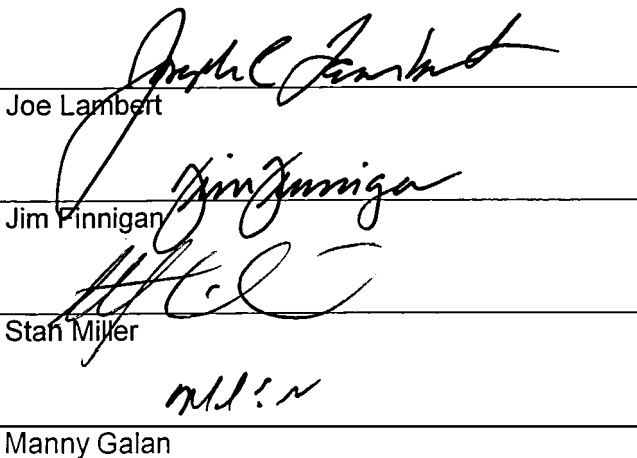 Joseph C Lambert
Joe Lambert
Jim Finnigan
Jim Finnigan
Stan Miller
Manny Galan